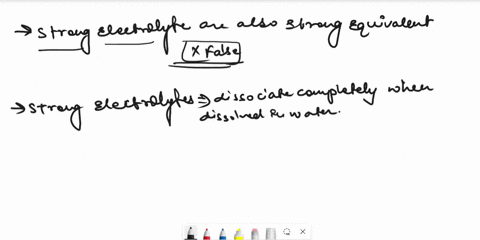 → Strong electrolyte are also strong equivalent
x False
→ strong electrolytes ⇒ dissociate completely when
dissolved in water.